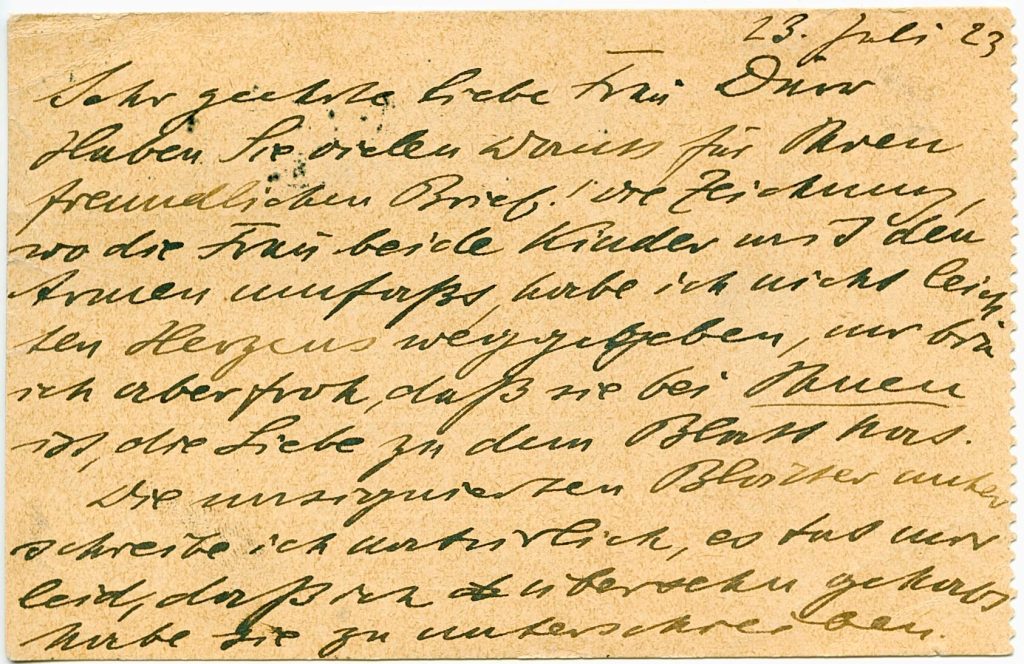 23. Juli 23
Sehr geehrte liebe Frau Dürr
Haben Sie vielen Dank für Ihren
freundlichen Brief! Die Zeichnung,
wo die Frau beide Kinder mit den
Armen umfaßt, habe ich nicht leich
ten Herzens weggegeben, nur bin
ich aber froh, daß sie bei Ihnen
ist, die Liebe zu dem Blatt hat.
Die unsignierten Blätter unter
schreibe ich natürlich, es tut mir
leid, daß ich übersehn gehabt
habe sie zu unterschreiben.